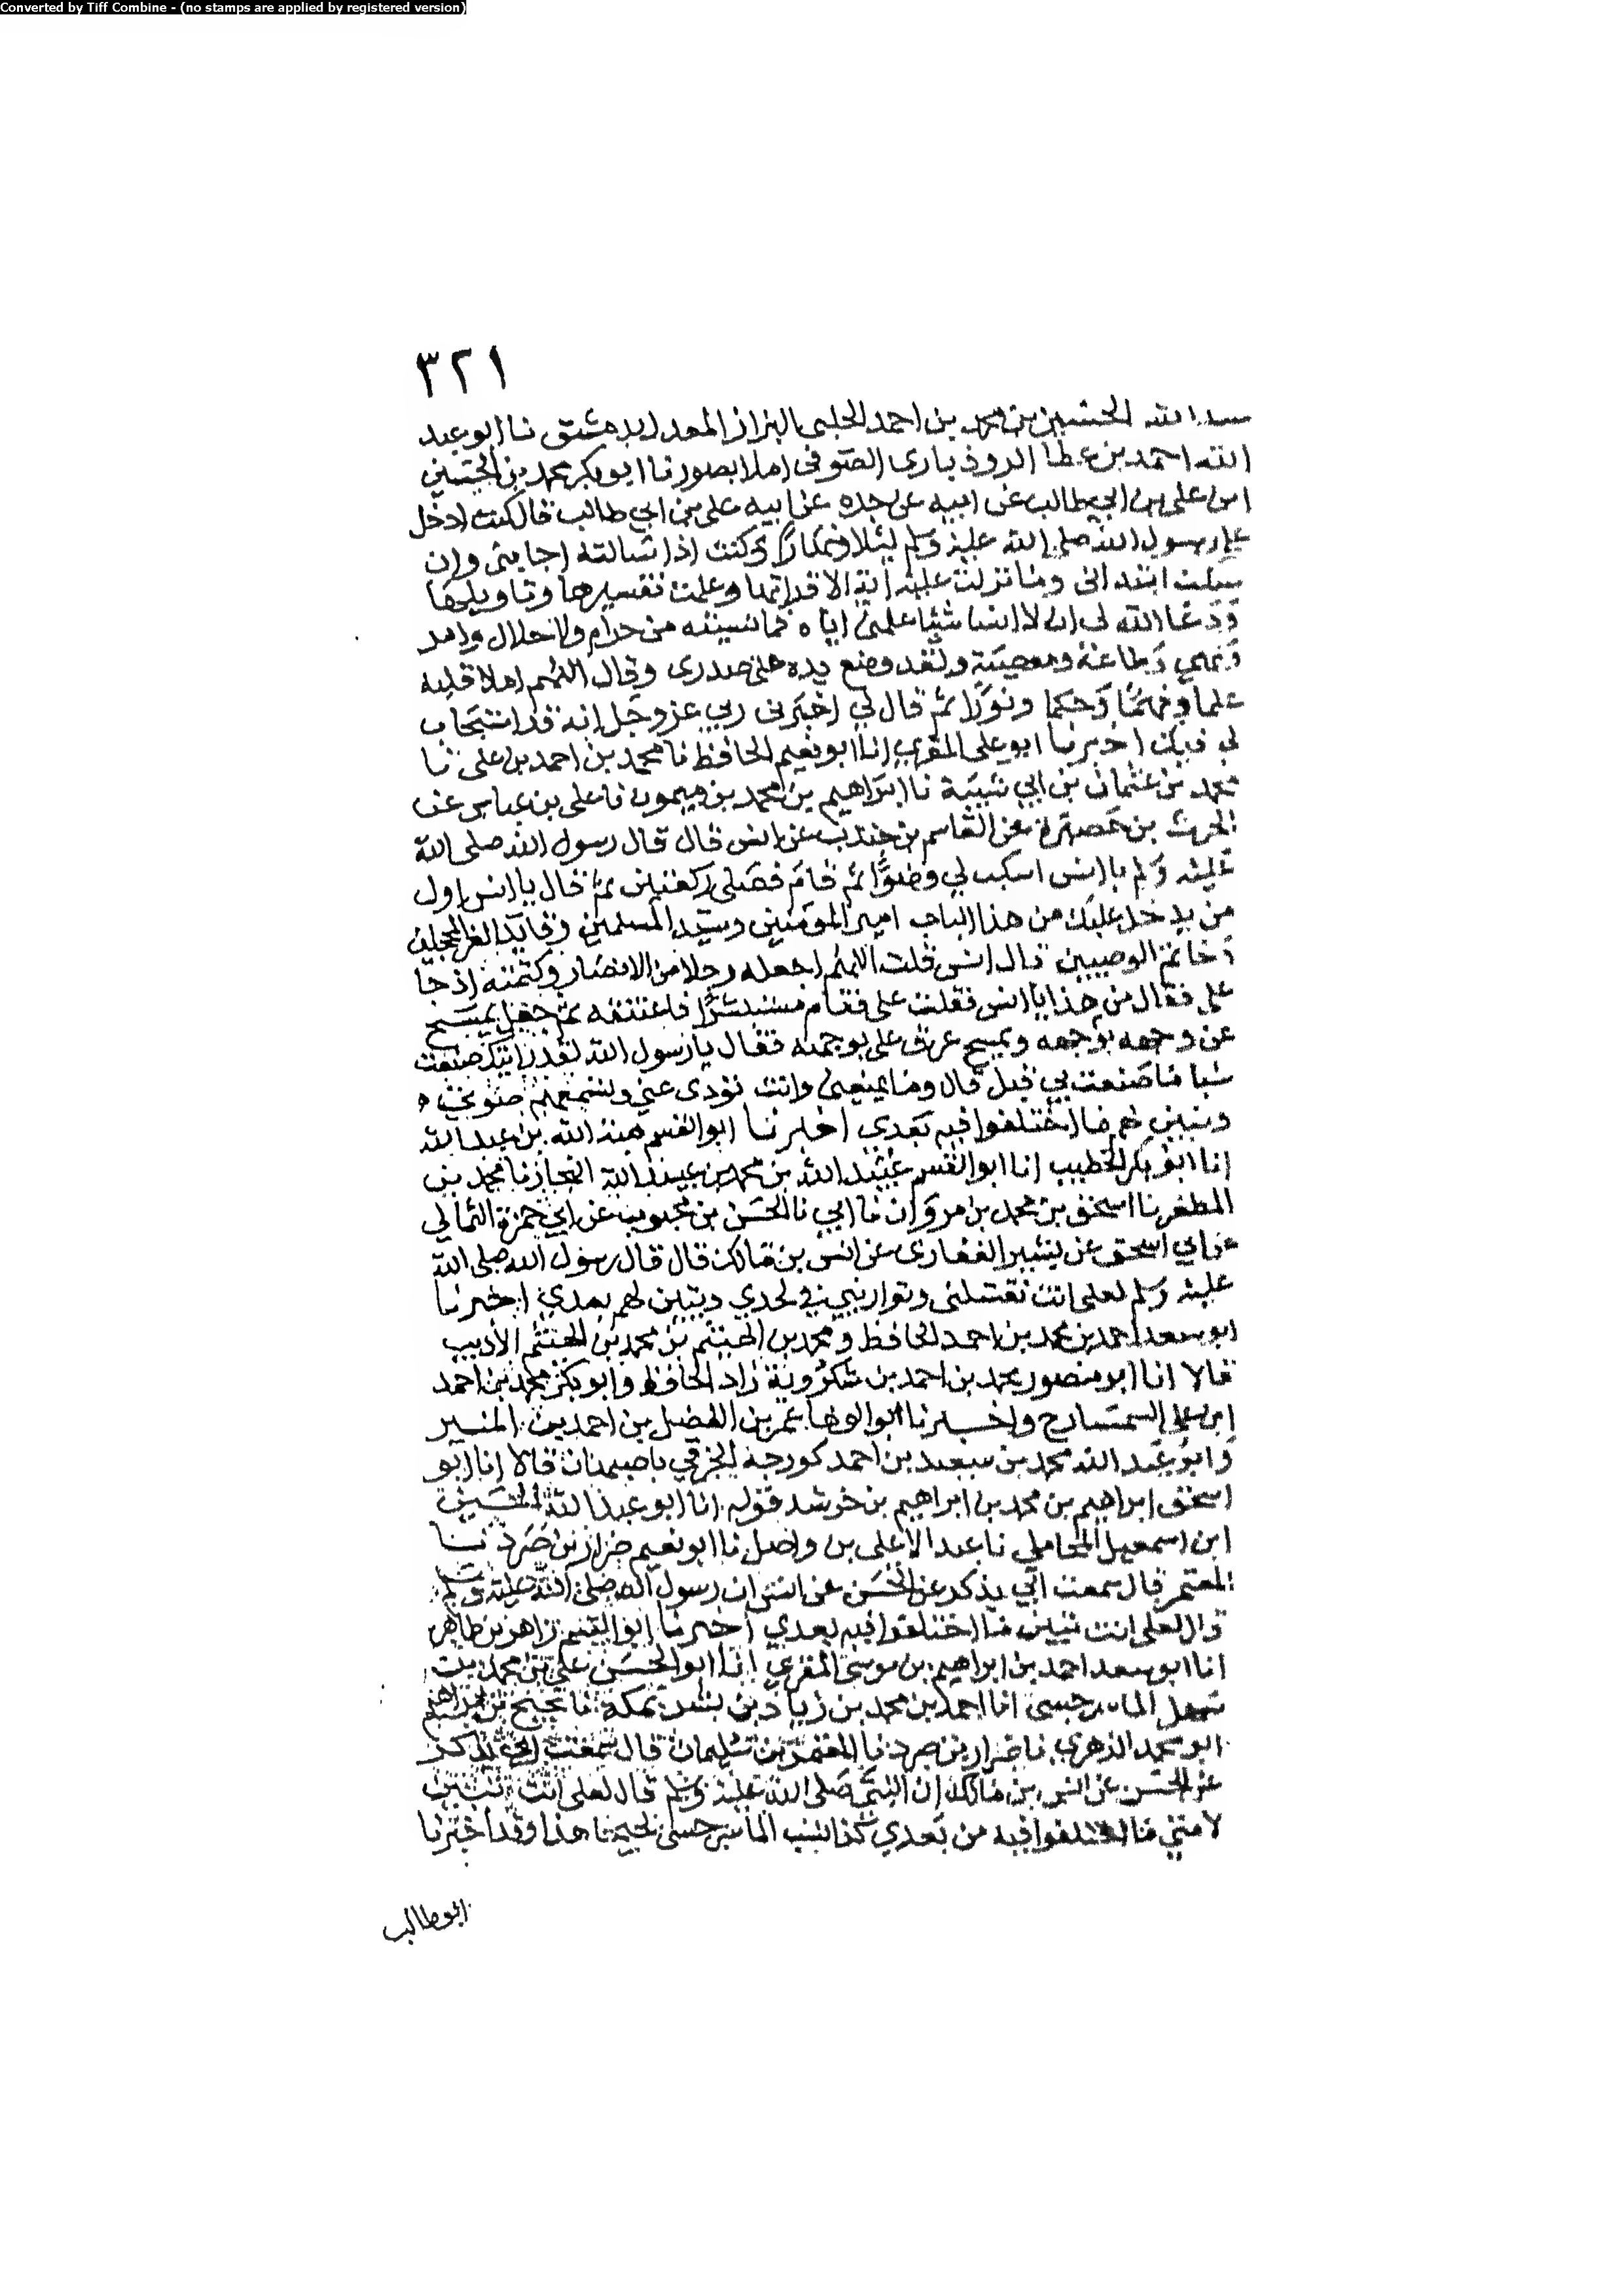 Converted by Tiff Combine - (no stamps are applied by registered version)
٣٢١
الله الحسين بن محمد بن احمد الحلبي البزاز المعدل بدمشق نا ابو عبد
الله احمد بن عطا الروذباري الصوفي املا بصور نا ابو بكر محمد بن الحسين
ابن علي بن ابي طالب عن ابيه عن جده عن ابيه علي بن ابي طالب قال كنت ادخل
على رسول الله صلى الله عليه وسلم ليلا ونهارا وكنت اذا سالته اجابني وان
سكت ابتداني وما نزلت عليه اية الا قراتها وعلمت تفسيرها وتاويلها
ودعا الله لي ان لا انسا شيا علمني اياه فما نسيته من حرام ولا حلال وامر
ونهي وطاعة ومعصية ولقد وضع يده على صدري وقال اللهم املا قلبه
علما وفهما وحكما ونورا ثم قال لي اخبرني ربي عز وجل انه قد استجاب
لي فيك اخبرنا ابو علي المقري انا ابو نعيم الحافظ نا محمد بن احمد بن علي نا
محمد بن عثمان بن ابي شيبة نا ابراهيم بن محمد بن ميمون نا علي بن عباس عن
الحرث بن حصيرة عن القاسم بن جندب عن انس قال قال رسول الله صلى الله
عليه وسلم يا انس اسكب لي وضوا ثم قام فصلى ركعتين ثم قال يا انس اول
من يدخل عليك من هذا الباب امير المومنين وسيد المسلمين وقايد الغر المحجلين
وخاتم الوصيين قال انس قلت اللهم اجعله رجلا من الانصار وكتمته اذ جا
علي فقال من هذا يا انس فقلت علي فقام مستبشرا فاعتنقه ثم جعل يمسح
عن وجهه بوجهه ويمسح عرق علي بوجهه فقال يا رسول الله لقد رايتك صنعت
شيا ما صنعت بي قبل قال وما يمنعني وانت تودي عني وتسمعهم صوتي
وتبين لهم ما اختلفوا فيه بعدي اخبرنا ابو القسم هبة الله بن عبد الله
انا ابو بكر الخطيب انا ابو القسم عبيد الله بن محمد بن عبيد الله النجار نا محمد بن
المظفر نا اسحق بن محمد بن مروان نا ابي نا الحسن بن محبوب عن ابي حمزة الثمالي
عن ابي اسحق عن بشير الغفاري عن انس بن مالك قال قال رسول الله صلى الله
عليه وسلم لعلي انت تغسلني وتواريني في لحدي وتبين لهم بعدي اخبرنا
ابو سعد احمد بن محمد بن احمد الحافظ ومحمد بن الهيثم بن محمد بن الهيثم الاديب
قالا انا ابو منصور محمد بن احمد بن شكرويه زاد الحافظ وابو بكر محمد بن احمد
ابن علي السمسار ح واخبرنا ابو الوفا عمر بن الفضل بن احمد بن المميز
وابو عبد الله محمد بن سعيد بن احمد كورجه الخرقي باصبهان قالا انا ابو
اسحق ابراهيم بن محمد بن ابراهيم بن خرشد قوله انا ابو عبد الله الحسين
ابن اسمعيل المحاملي نا عبد الاعلى بن واصل نا ابو نعيم ضرار بن صرد نا
المعتمر قال سمعت ابي يذكر عن الحسن عن انس ان رسول الله صلى الله عليه وسلم
قال لعلي انت تبين ما اختلفوا فيه بعدي اخبرنا ابو القسم زاهر بن طاهر
انا ابو سعد احمد بن ابراهيم بن موسى المقري انا ابو الحسن علي بن محمد بن
سهل الماسرجسي انا احمد بن محمد بن زياد بن بشر بمكة نا نجيح بن ابراهيم
ابو محمد الزهري نا ضرار بن صرد نا المعتمر بن سليمان قال سمعت ابي يذكر
عن الحسن عن انس بن مالك ان النبي صلى الله عليه وسلم قال لعلي انت تبين
لامتي ما اختلفوا فيه من بعدي كذا نسب الماسرجسي نجيحا هذا وقد اخبرنا
ابو طالب